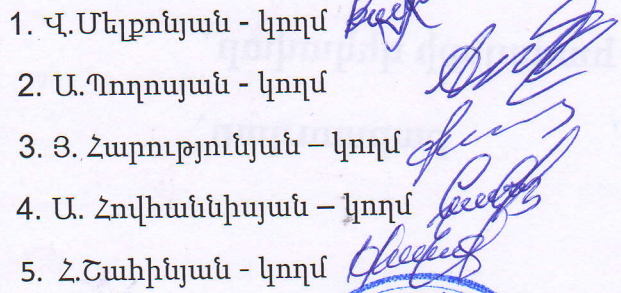 1. Վ.Մելքոնյան - կողմ
2. Ա.Պողոսյան - կողմ
3. Յ. Հարությունյան – կողմ
4. Ա. Հովհաննիսյան – կողմ
5. Հ.Շահինյան - կողմ